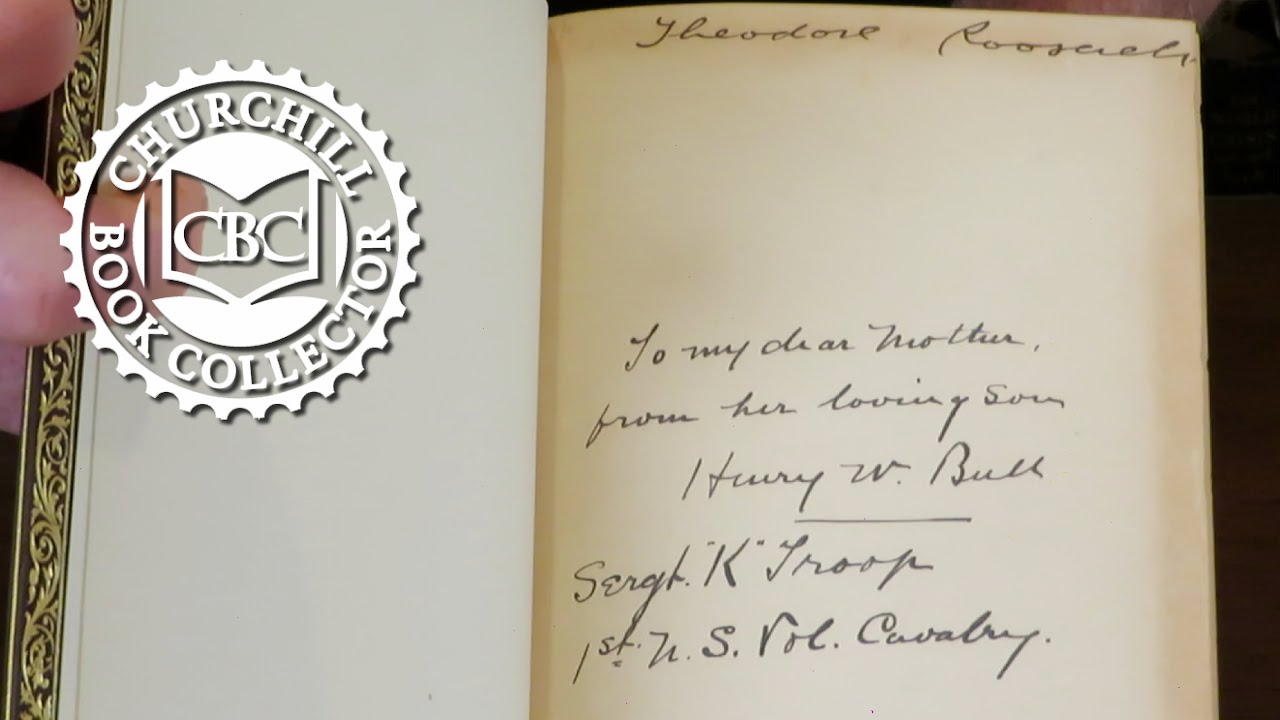 CHURCHILL
CBC
BOOK COLLECTOR
Theodore Roosevelt
To my dear Mother,
from her loving Son
Henry W. Bull
Sergt. "K" Troop
1st. U. S. Vol. Cavalry.